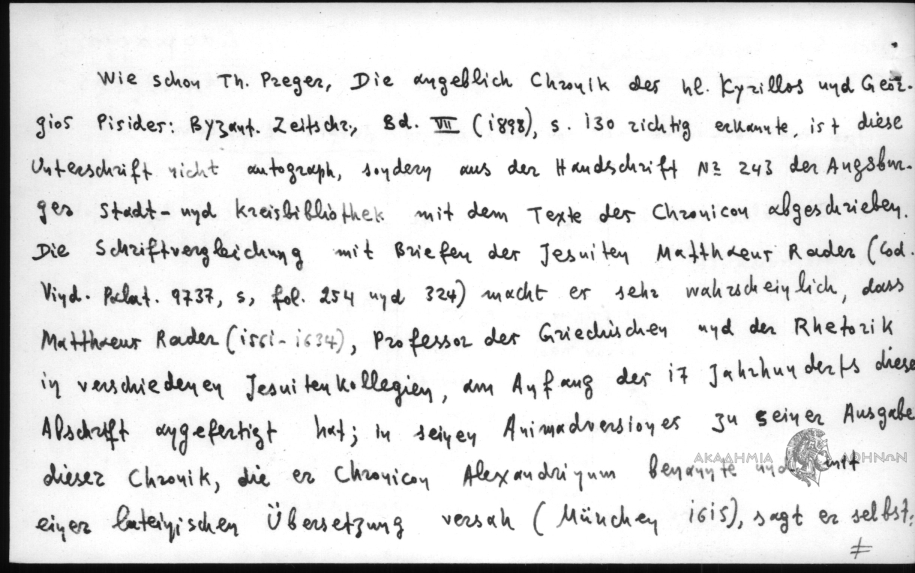 Wie schon Th. Preger, Die angeblich Chronik des hl. Kyrillos und Geor-
gios Pisides: Byzant. Zeitschr., Bd. VII (1898), s. 130 richtig erkannte, ist diese
Unterschrift nicht autograph, sondern aus der Handschrift № 243 der Augsbur-
ger Stadt- und Kreisbibliothek mit dem Texte des Chronicon abgeschrieben.
Die Schriftvergleichung mit Briefen des Jesuiten Matthaeus Rader (Cod.
Vind. Palat. 9737, s, fol. 254 und 324) macht es sehr wahrscheinlich, dass
Matthaeus Rader (1561-1634), Professor des Griechischen und der Rhetorik
in verschiedenen Jesuitenkollegien, am Anfang des 17 Jahrhunderts diese
Abschrift angefertigt hat; in seinen Animadversiones zu seiner Ausgabe
ΑΚΑΔΗΜΙΑ ΑΘΗΝΩΝ
dieser Chronik, die er Chronicon Alexandrinum benannte und mit
einer lateinischen Übersetzung versah (München 1615), sagt er selbst,
≠